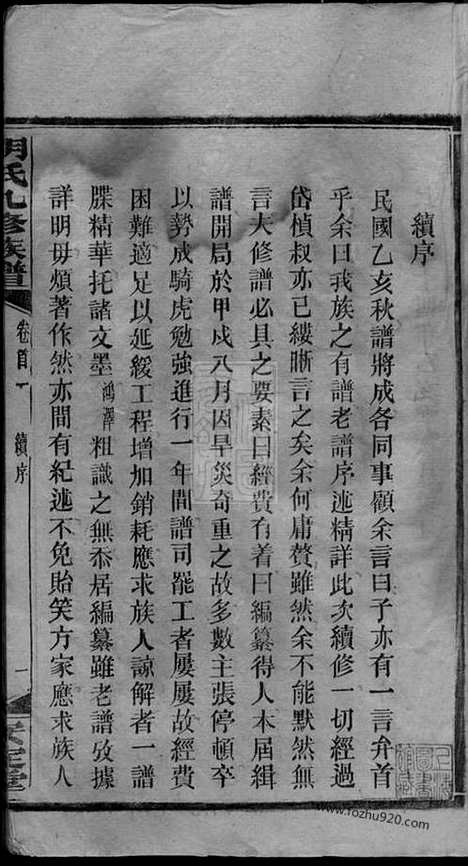 續序
民國乙亥秋譜將成各同事顧余言曰子亦有一言弁首
乎余曰我族之有譜老譜序述精詳此次續修一切經過
岱楨叔亦已縷晰言之矣余何庸贅雖然余不能默然無
言夫修譜必具之要素曰經費有着曰編纂得人本屆緝
譜開局於甲戍八月因旱災奇重之故多數主張停頓卒
以勢成騎虎勉強進行一年間譜司罷工者屢屢故經費
困難適足以延緩工程增加銷耗應求族人諒解者一譜
牒精華托諸文墨鴻澤粗識之無忝居編纂雖老譜攷據
詳明毋煩著作然亦間有紀述不免貽笑方家應求族人
胡氏九修族譜
卷首一
續序
一
www.fozhu920.com